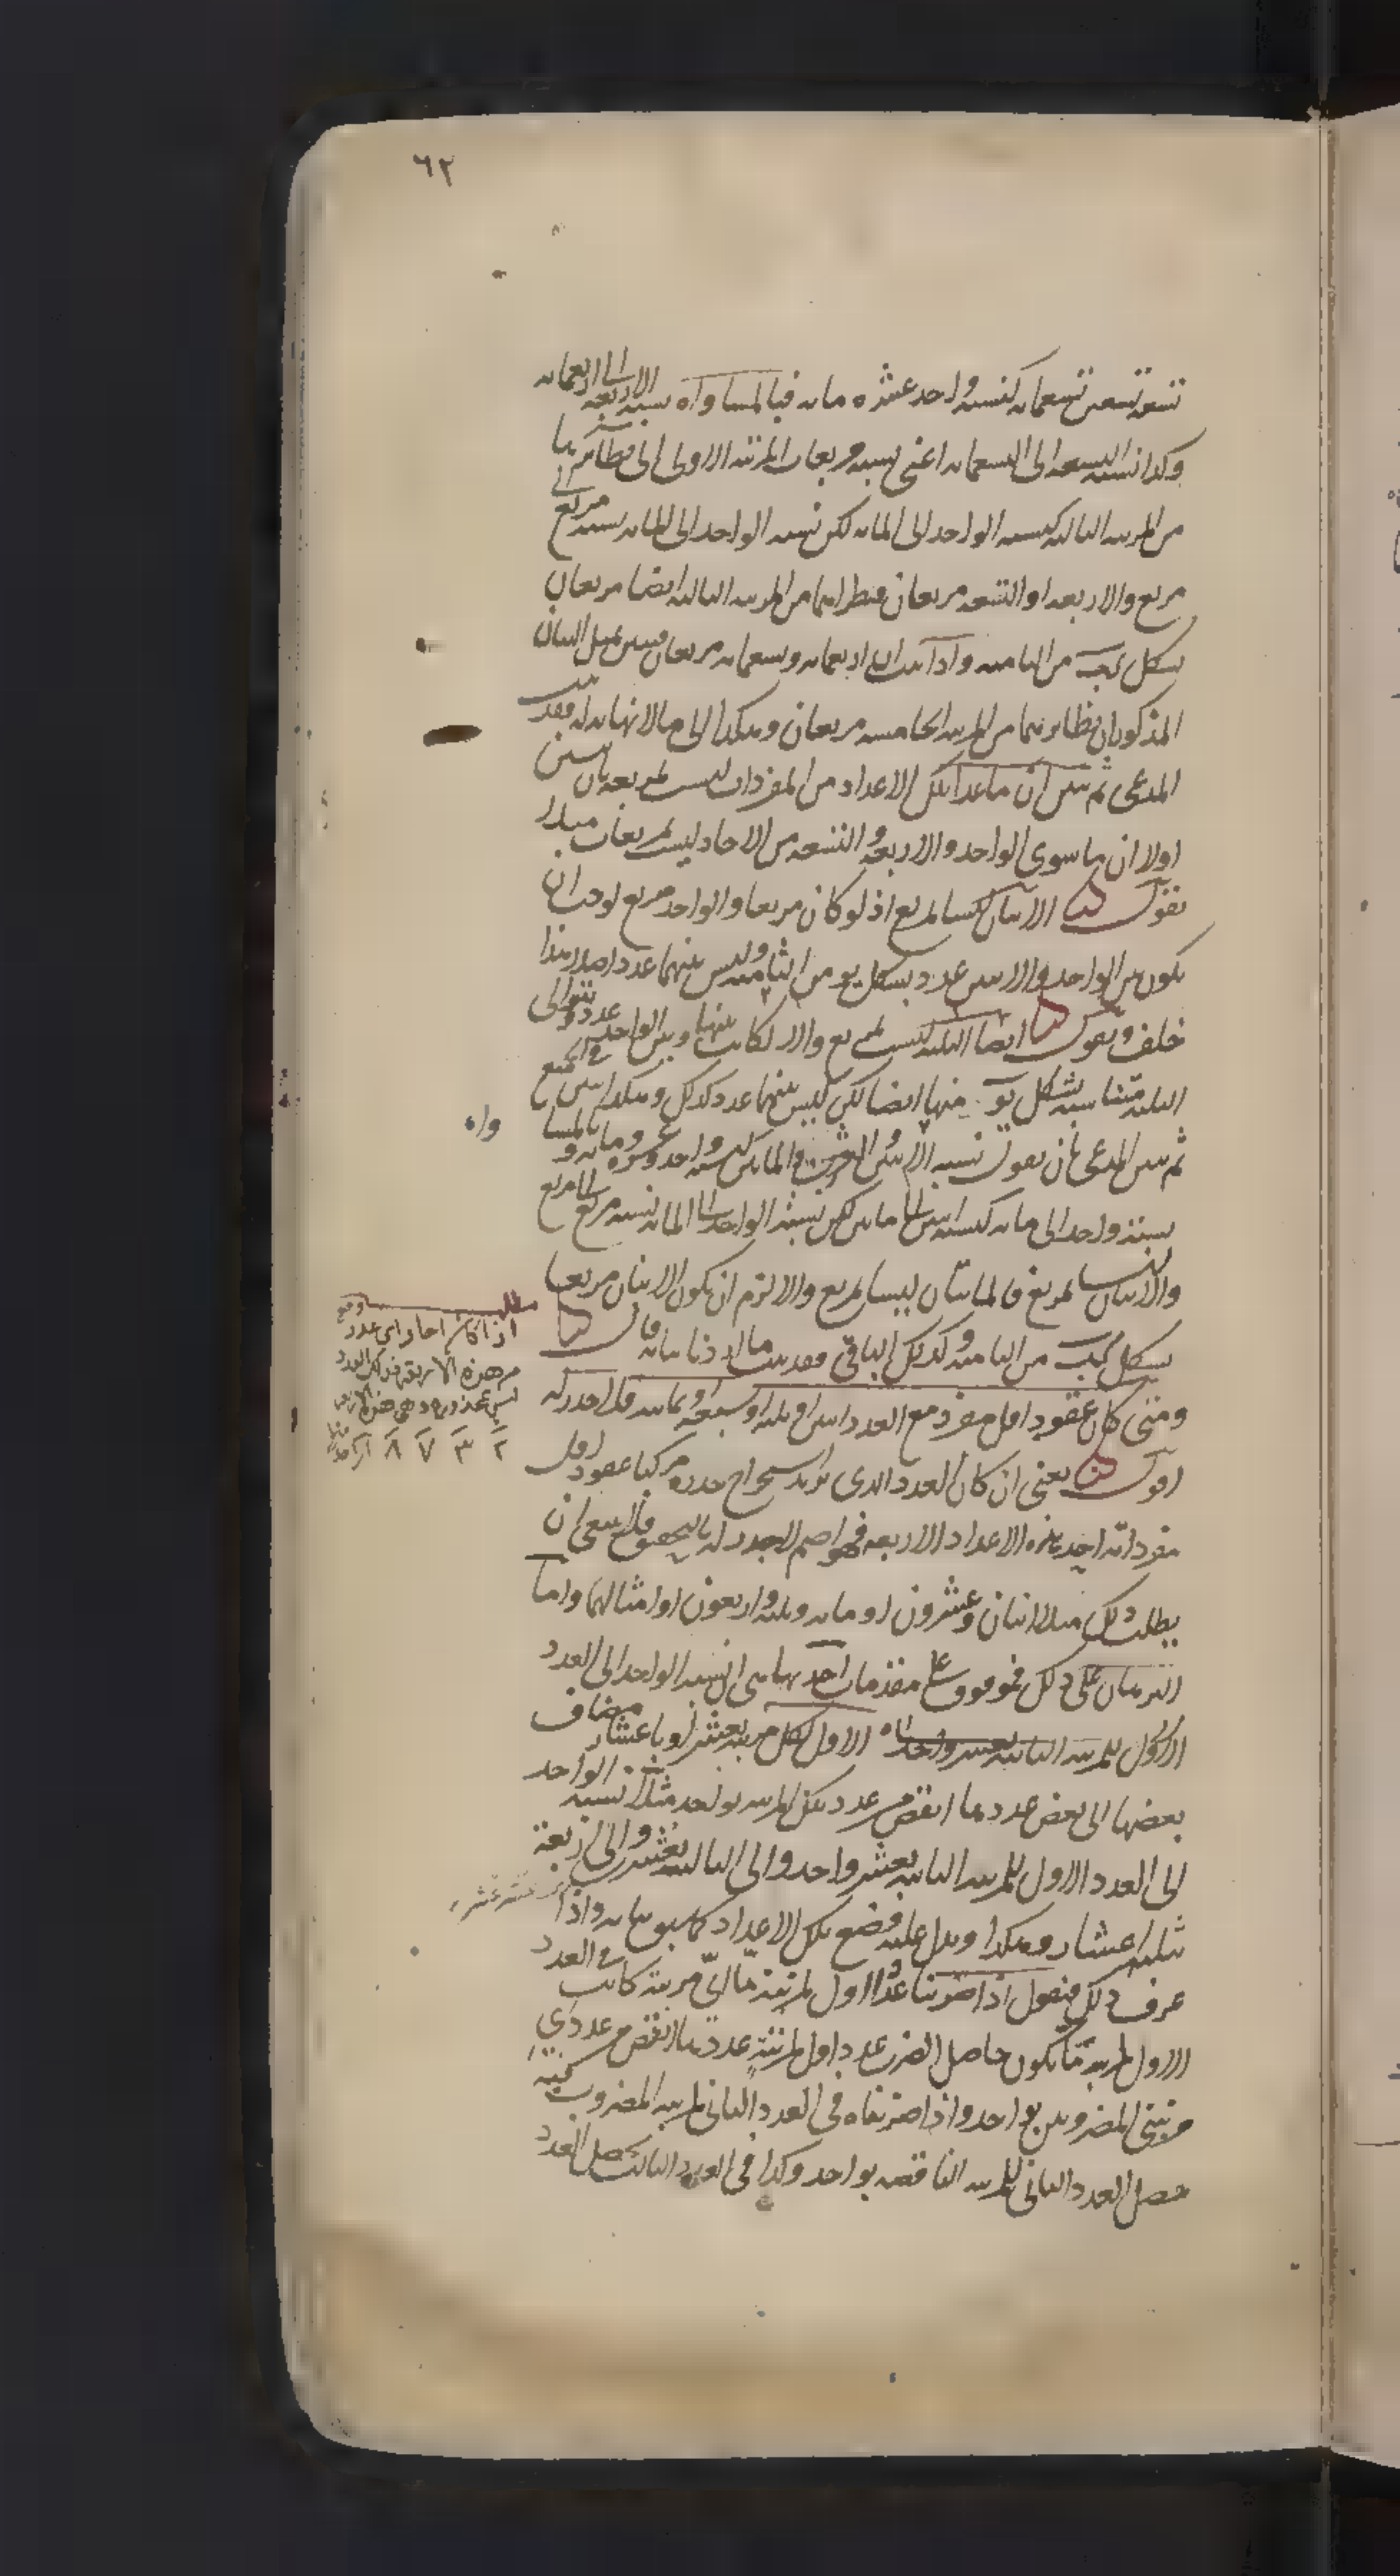 ٦٢
تسعة تسعين تسعمائة كنسبة واحد عشرة مائة فبالمساواة نسبة الاربعة الى اربعمائة
وكذا نسبة التسعة الى التسعمائة اعنى نسبة مربعات المرتبة الاولى الى نظائرها
من المرتبة الثالثة كنسبة الواحد الى المائة لكن نسبة الواحد الى المائة نسبة مربع الى
مربع والاربعة او التسعة مربعان فنظيراهما من المرتبة الثالثة ايضا مربعان
بشكل من الثامنة واذا ثبت ان اربعمائة وتسعمائة مربعان فبين بمثل البيان
المذكور ان نظائرهما من المرتبة الخامسة مربعان وهكذا الى ما لا نهاية له فقد ثبت
المدعى ثم نبين ان ما عدا تلك الاعداد من المفردات ليست بمربعة بان نبين
اولا ان ما سوى الواحد والاربعة والتسعة من الاحاد ليست بمربعات مثلا
نقول الاثنان ليسا بمربع اذ لو كان مربعا والواحد مربع لوجب ان
يكون بين الواحد والاثنين عدد بشكل من الثامنة وليس بينهما عدد اصلا هذا
خلف ونقول ايضا الثلثة ليست بمربع والا لكانت بينها وبين الواحد عدد وتتوالى
الثلثة متناسبة بشكل منها ايضا لكن ليس بينهما عدد كذلك وهكذا نبين في الجميع
ثم نبين المدعى بان نقول نسبة الاثنين والعشرين والمائتين كنسبة واحد وعشرة ومائة وبالمسا
واة
نسبة واحد الى مائة كنسبة اثنين الى مائتين لكن نسبة الواحد الى المائة نسبة مربع الى مربع
والاثنان ليسا بمربع فالمائتان ليسا بمربع والا لزم ان يكون الاثنان مربعا
بشكل من الثامنة وكذلك الباقى فقد ثبت ما اردنا بيانه قال
ومتى كان عقود اول مفرد مع العدد اثنين او ثلثة او سبعة او ثمانية فلا جذر له
اقول يعنى ان كان العدد الذى نريد استخراج جذره مركبا عقود اول
مفرداته احد هذه الاعداد الاربعة فهو اصم لا جذر له بالتحقيق فلا ينبغى ان
يطلب ذلك مثلا اثنان وعشرون او مائة وثلثة واربعون او امثالهما واما
البرهان على ذلك فموقوف على مقدمات احديها هى ان نسبة الواحد الى العدد
الاول للمرتبة الثانية بعشر واحد الاول لكل مرتبة بعشر او باعشار مضاف
بعضها الى بعض عددها انقص من عدد تلك المرتبة بواحد مثلا نسبة الواحد
الى العدد الاول للمرتبة الثانية بعشر واحد والى الثالثة بعشر والى اربعة
ثلثة اعشار وهكذا ويدل عليه وضع تلك الاعداد كما سبق بيانه واذا
عرف ذلك فنقول اذا ضربنا عدد الاول لمرتبة ما اى مرتبة كانت في العدد
الاول لمرتبة ما يكون حاصل الضرب عدد اول لمرتبة عددها انقص من عددى
مرتبتى المضروبين بواحد واذا ضربناه فى العدد الثانى لمرتبة المضروب فيه
حصل العدد الثانى للمرتبة الناقصة بواحد وكذا فى العدد الثالث يحصل العدد
مطلب
اذا كان احاد اى عدد
من هذه الاربعة فذلك العدد
ليس بمجذور وهى هذه
٢ ٣ ٧ ٨